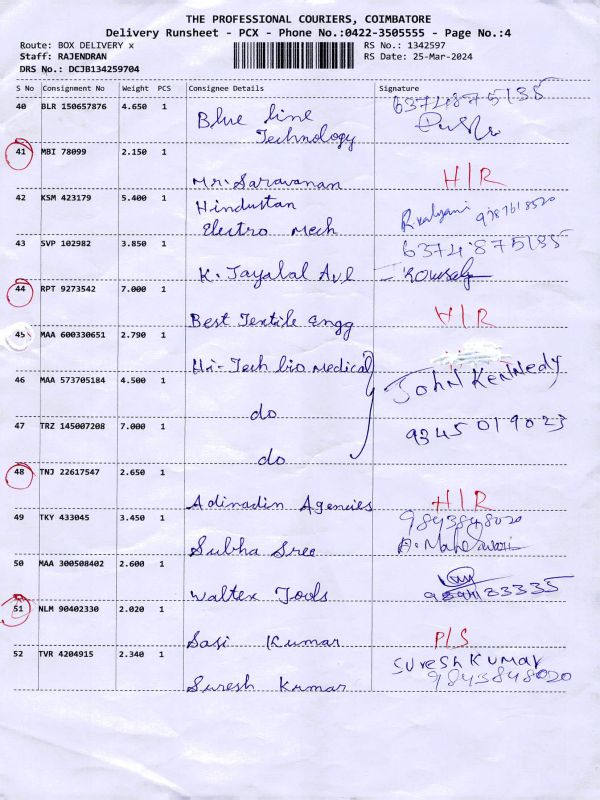 THE PROFESSIONAL COURIERS, COIMBATORE
Delivery Runsheet - PCX - Phone No.:0422-3505555 - Page No.:4
Route: BOX DELIVERY x
RS No.: 1342597
Staff: RAJENDRAN
RS Date: 25-Mar-2024
DRS No.: DCJB134259704
S No Consignment No Weight PCS Consignee Details Signature
40 BLR 150657876 4.650 1 Blue line 6374875135
Technology
41 MBI 78099 2.150 1
Mr. Saravanan H/R
42 KSM 423179 5.400 1 Hindustan
Electro Mech 9787618520
43 SVP 102982 3.850 1 6374875135
K. Jayabal Ave
44 RPT 9273542 7.000 1
Best Textile Engg H/R
45 MAA 600330651 2.790 1
Hi-Tech bio medical
46 MAA 573705184 4.500 1 JOHN KENNEDY
do
47 TRZ 145007208 7.000 1 9345019023
do
48 TNJ 22617547 2.650 1
Adinadin Agencies H/R
49 TKY 433045 3.450 1 9843848020
Subha Sree A. Maheswari
50 MAA 300508402 2.600 1
Waltex Tools
51 NLM 90402330 2.020 1
Sasi Kumar P/S
52 TVR 4204915 2.340 1 Suresh Kumar
Suresh Kumar 9843848020